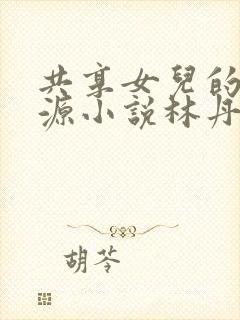 共享女兒的
源小説林丹
胡苓